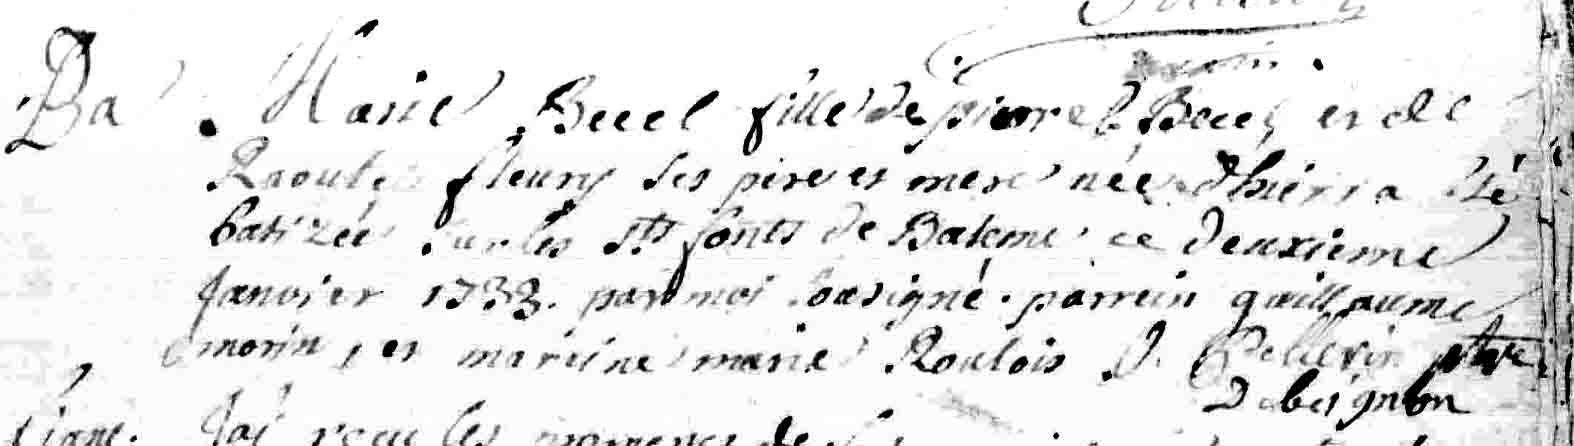 Ba . Marie Becel fille de pierre Becel et de
Raoule fleury ses pere et mere née d'hier a été
batizée sur les Sts fonts de Bateme ce deuxieme
Janvier 1733. par moi sousigné. parrein guillaume
morin, et mareine marie Roulois J. Pelletrin ptre
Debeignon
signe. J'ai receu les